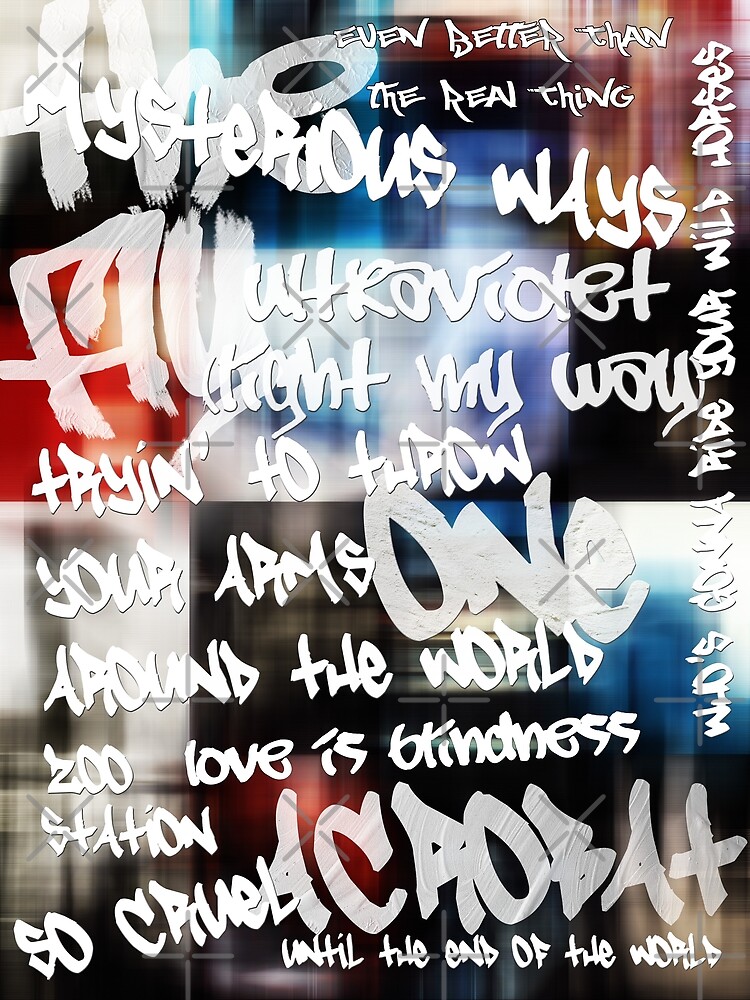 EVEN BETTER THAN
THE REAL THING
MYSTERIOUS WAYS
THE
FLY
ultraviolet
light my way
TRYIN' TO THROW
YOUR ARMS
AROUND THE WORLD
ONE
ZOO
STATION
love is blindness
ACROBAT
SO CRUEL
UNTIL THE END OF THE WORLD
WHO'S GONNA RIDE YOUR WILD HORSES